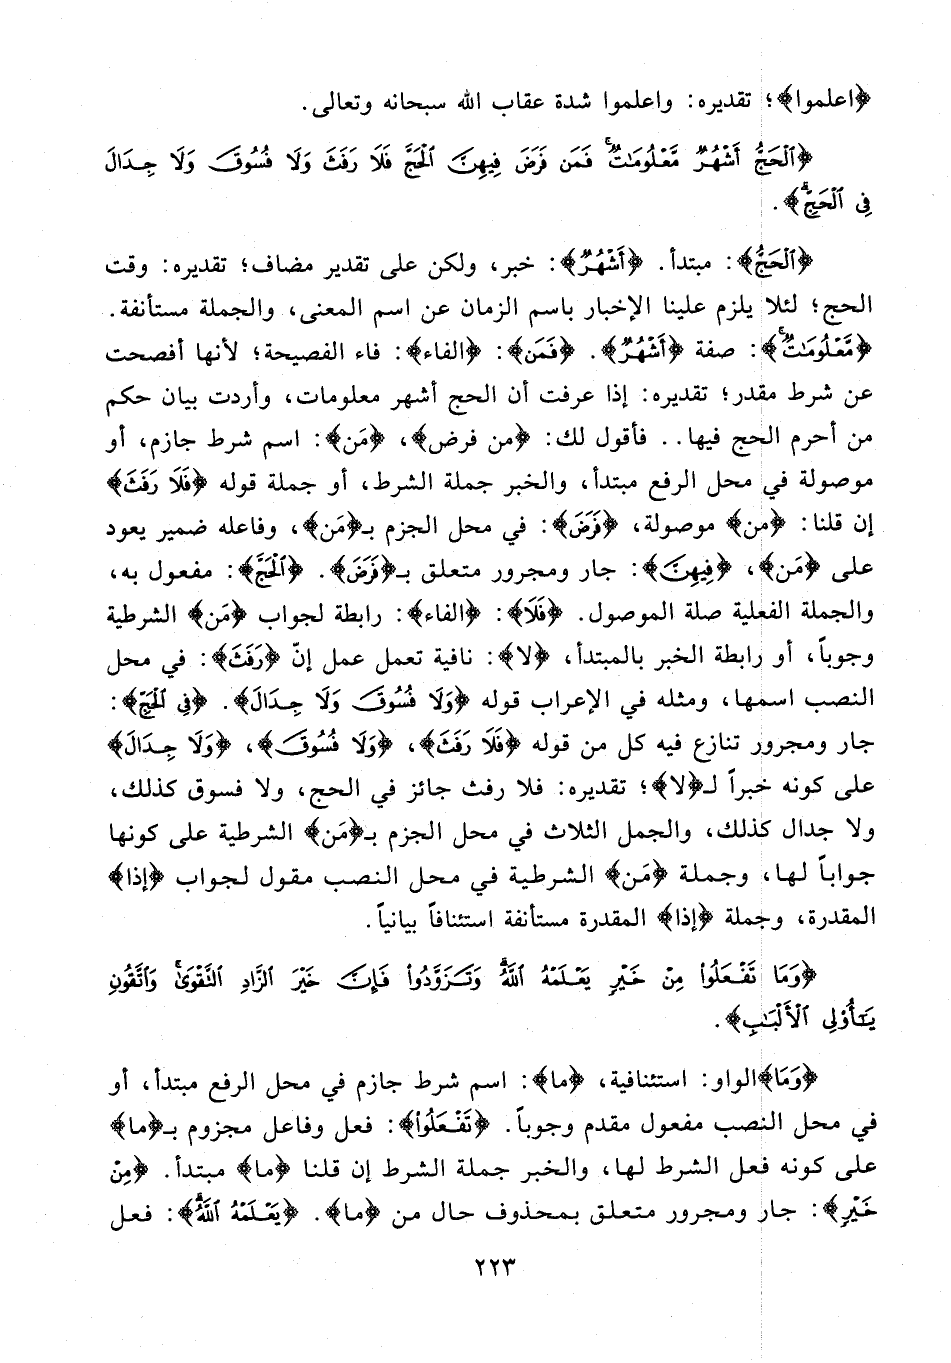 ﴿اعلموا﴾؛ تقديره: واعلموا شدة عقاب الله سبحانه وتعالى.
﴿ٱلْحَجُّ أَشْهُرٌ مَّعْلُومَٰتٌ ۚ فَمَن فَرَضَ فِيهِنَّ ٱلْحَجَّ فَلَا رَفَثَ وَلَا فُسُوقَ وَلَا جِدَالَ
فِى ٱلْحَجِّ ۗ﴾.
﴿ٱلْحَجُّ﴾: مبتدأ. ﴿أَشْهُرٌ﴾: خبر، ولكن على تقدير مضاف؛ تقديره: وقت
الحج؛ لئلا يلزم علينا الإخبار باسم الزمان عن اسم المعنى، والجملة مستأنفة.
﴿مَّعْلُومَٰتٌ ۚ﴾: صفة ﴿أَشْهُرٌ﴾. ﴿فَمَن﴾: ﴿الفاء﴾: فاء الفصيحة؛ لأنها أفصحت
عن شرط مقدر؛ تقديره: إذا عرفت أن الحج أشهر معلومات، وأردت بيان حكم
من أحرم الحج فيها.. فأقول لك: ﴿من فرض﴾، ﴿مَن﴾: اسم شرط جازم، أو
موصولة في محل الرفع مبتدأ، والخبر جملة الشرط، أو جملة قوله ﴿فَلَا رَفَثَ﴾
إن قلنا: ﴿من﴾ موصولة، ﴿فَرَضَ﴾: في محل الجزم بـ﴿مَن﴾، وفاعله ضمير يعود
على ﴿مَن﴾، ﴿فِيهِنَّ﴾: جار ومجرور متعلق بـ﴿فَرَضَ﴾. ﴿ٱلْحَجَّ﴾: مفعول به،
والجملة الفعلية صلة الموصول. ﴿فَلَا﴾: ﴿الفاء﴾: رابطة لجواب ﴿مَن﴾ الشرطية
وجوباً، أو رابطة الخبر بالمبتدأ، ﴿لا﴾: نافية تعمل عمل إنّ ﴿رَفَثَ﴾: في محل
النصب اسمها، ومثله في الإعراب قوله ﴿وَلَا فُسُوقَ وَلَا جِدَالَ﴾. ﴿فِى ٱلْحَجِّ﴾:
جار ومجرور تنازع فيه كل من قوله ﴿فَلَا رَفَثَ﴾، ﴿وَلَا فُسُوقَ﴾، ﴿وَلَا جِدَالَ﴾
على كونه خبراً لـ﴿لا﴾؛ تقديره: فلا رفث جائز في الحج، ولا فسوق كذلك،
ولا جدال كذلك، والجمل الثلاث في محل الجزم بـ﴿مَن﴾ الشرطية على كونها
جواباً لها، وجملة ﴿مَن﴾ الشرطية في محل النصب مقول لجواب ﴿إذا﴾
المقدرة، وجملة ﴿إذا﴾ المقدرة مستأنفة استئنافاً بيانياً.
﴿وَمَا تَفْعَلُوا۟ مِنْ خَيْرٍ يَعْلَمْهُ ٱللَّهُ ۗ وَتَزَوَّدُوا۟ فَإِنَّ خَيْرَ ٱلزَّادِ ٱلتَّقْوَىٰ ۚ وَٱتَّقُونِ
يَٰٓأُو۟لِى ٱلْأَلْبَٰبِ﴾.
﴿وَمَا﴾الواو: استئنافية، ﴿ما﴾: اسم شرط جازم في محل الرفع مبتدأ، أو
في محل النصب مفعول مقدم وجوباً. ﴿تَفْعَلُوا۟﴾: فعل وفاعل مجزوم بـ﴿ما﴾
على كونه فعل الشرط لها، والخبر جملة الشرط إن قلنا ﴿ما﴾ مبتدأ. ﴿مِنْ
خَيْرٍ﴾: جار ومجرور متعلق بمحذوف حال من ﴿ما﴾. ﴿يَعْلَمْهُ ٱللَّهُ ۗ﴾: فعل
٢٢٣